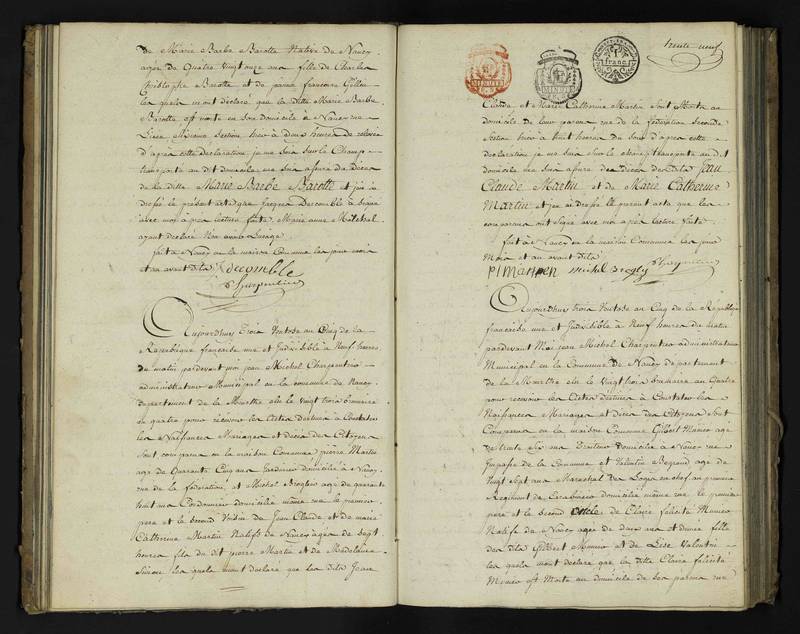 de Marie Barbe Barotte Native de Nancy
agée de Quatre vingt onze ans fille de Charles
Barotte et de jeanne francoise
les quels m'ont declaré que la ditte Marie Barbe
Barotte est morte en son domicile à Nancy rue
Section hier à deux heures de relevée
d'apres cette declaration je me suis sur le Champ
transporté au dit domicile me suis assuré du Deces
de la ditte Marie Barbe Barotte et j'ai
dressé le présent acte que Jacques Decomble à signé
avec moi après lecture faite, Marie anne
ayant declaré n'en avoir l'usage
fait à Nancy en la maison Commune les jour mois
et an avant dits Decomble
Charpentier
Aujourdhuy Trois Ventose au Cinq de la
Republique française une et Indivisible à Neuf heures
du matin pardevant moi jean Michel Charpentier
administrateur Municipal en la commune de Nancy
departement de la Meurthe elu le vingt trois brumaire
an quatre pour recevoir les Actes destinés à Constater
les Naissances Mariages et Décès des Citoyens
sont comparus en la maison Commune, pierre Martin
agé de Quarante Cinq ans Jardinier domicilié à Nancy
rue de la federation, et Michel Broglis agé de quarante
huit ans Cordonnier domicilié même rue le premier
pere et le second Voisin de Jean Claude et de marie
Catherine Martin Natifs de Nancy agés de sept
heures fils du dit pierre Martin et de Madelaine
Simon les quels m'ont declaré que les dits Jean
trente neuf
1
franc
Claude et Marie Catherine Martin sont Morts au
domicile de leur parens rue de la federation seconde
Section hier à huit heures du soir d'apres cette
declaration je me suis sur le champ transporté au dit
domicile me suis assuré des deces des dits Jean
Claude Martin et de Marie Catherine
Martin et j'en ai dressé le présent acte que les
comparans ont signé avec moi après lecture faite
fait à Nancy en la maison Commune les jour
Mois et an avant dits
michel Broglis Charpentier
Aujourdhuy trois Ventose au Cinq de la République
française une et Indivisible à Neuf heures du matin
pardevant Moi jean Michel Charpentier administrateur
Municipal en la Commune de Nancy departement
de la Meurthe elu le vingt trois brumaire an quatre
pour recevoir les Actes destinés à Constater les
Naissances Mariages et décès des Citoyens sont
Comparus en la maison Commune Gilbert agé
de trente six ans Traiteur domicilié à Nancy rue
de la Commune et Valentin agé de
Vingt Sept ans Marechal des Logis en chef au premier
Regiment de Carabiniers domicilié même rue le premier
pere et le second oncle de Claire félicité
Natife de Nancy agée de deux ans et demie fille
des dits Gilbert et de Lise Valentin
les quels m'ont declaré que la ditte Claire félicité
est Morte au domicile de ses parens rue